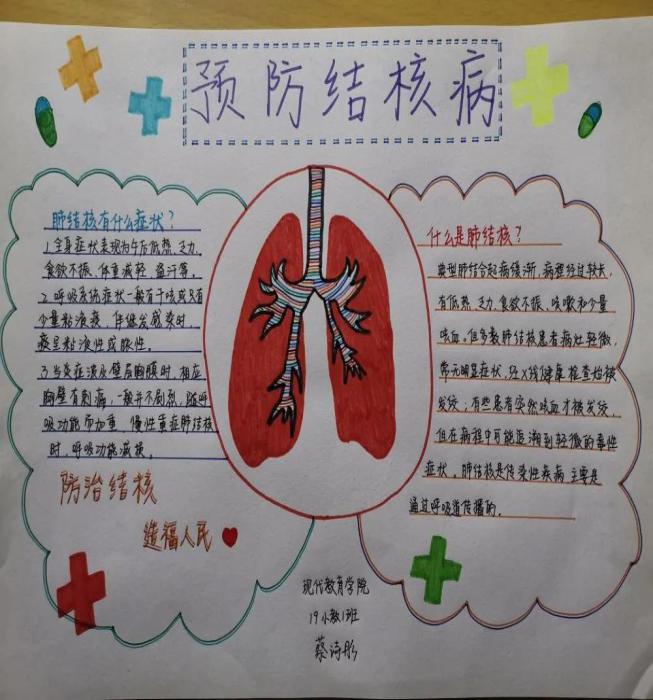 预防结核病
肺结核有什么症状？
1.全身症状表现为午后低热、乏力、
食欲不振、体重减轻、盗汗等。
2.呼吸系统症状一般有干咳或只有
少量粘液痰，伴继发感染时，
痰呈粘液性或脓性。
3.当炎症波及壁层胸膜时，相应
胸壁有刺痛，一般并不剧烈，随呼
吸功能而加重，慢性重症肺结核
时，呼吸功能减损。
防治结核
造福人民
什么是肺结核？
典型肺结合起病缓渐，病程经过较长，
有低热、乏力、食欲不振、咳嗽和少量
咳血。但多数肺结核患者病灶轻微，
常无明显症状，经X线健康检查始被
发纹，有些患者突然咳血才被发纹，
但在病程中可能追溯到轻微的毒性
症状。肺结核是传染性疾病，主要是
通过呼吸道传播的。
现代教育学院
19小教1班
蔡诗彤